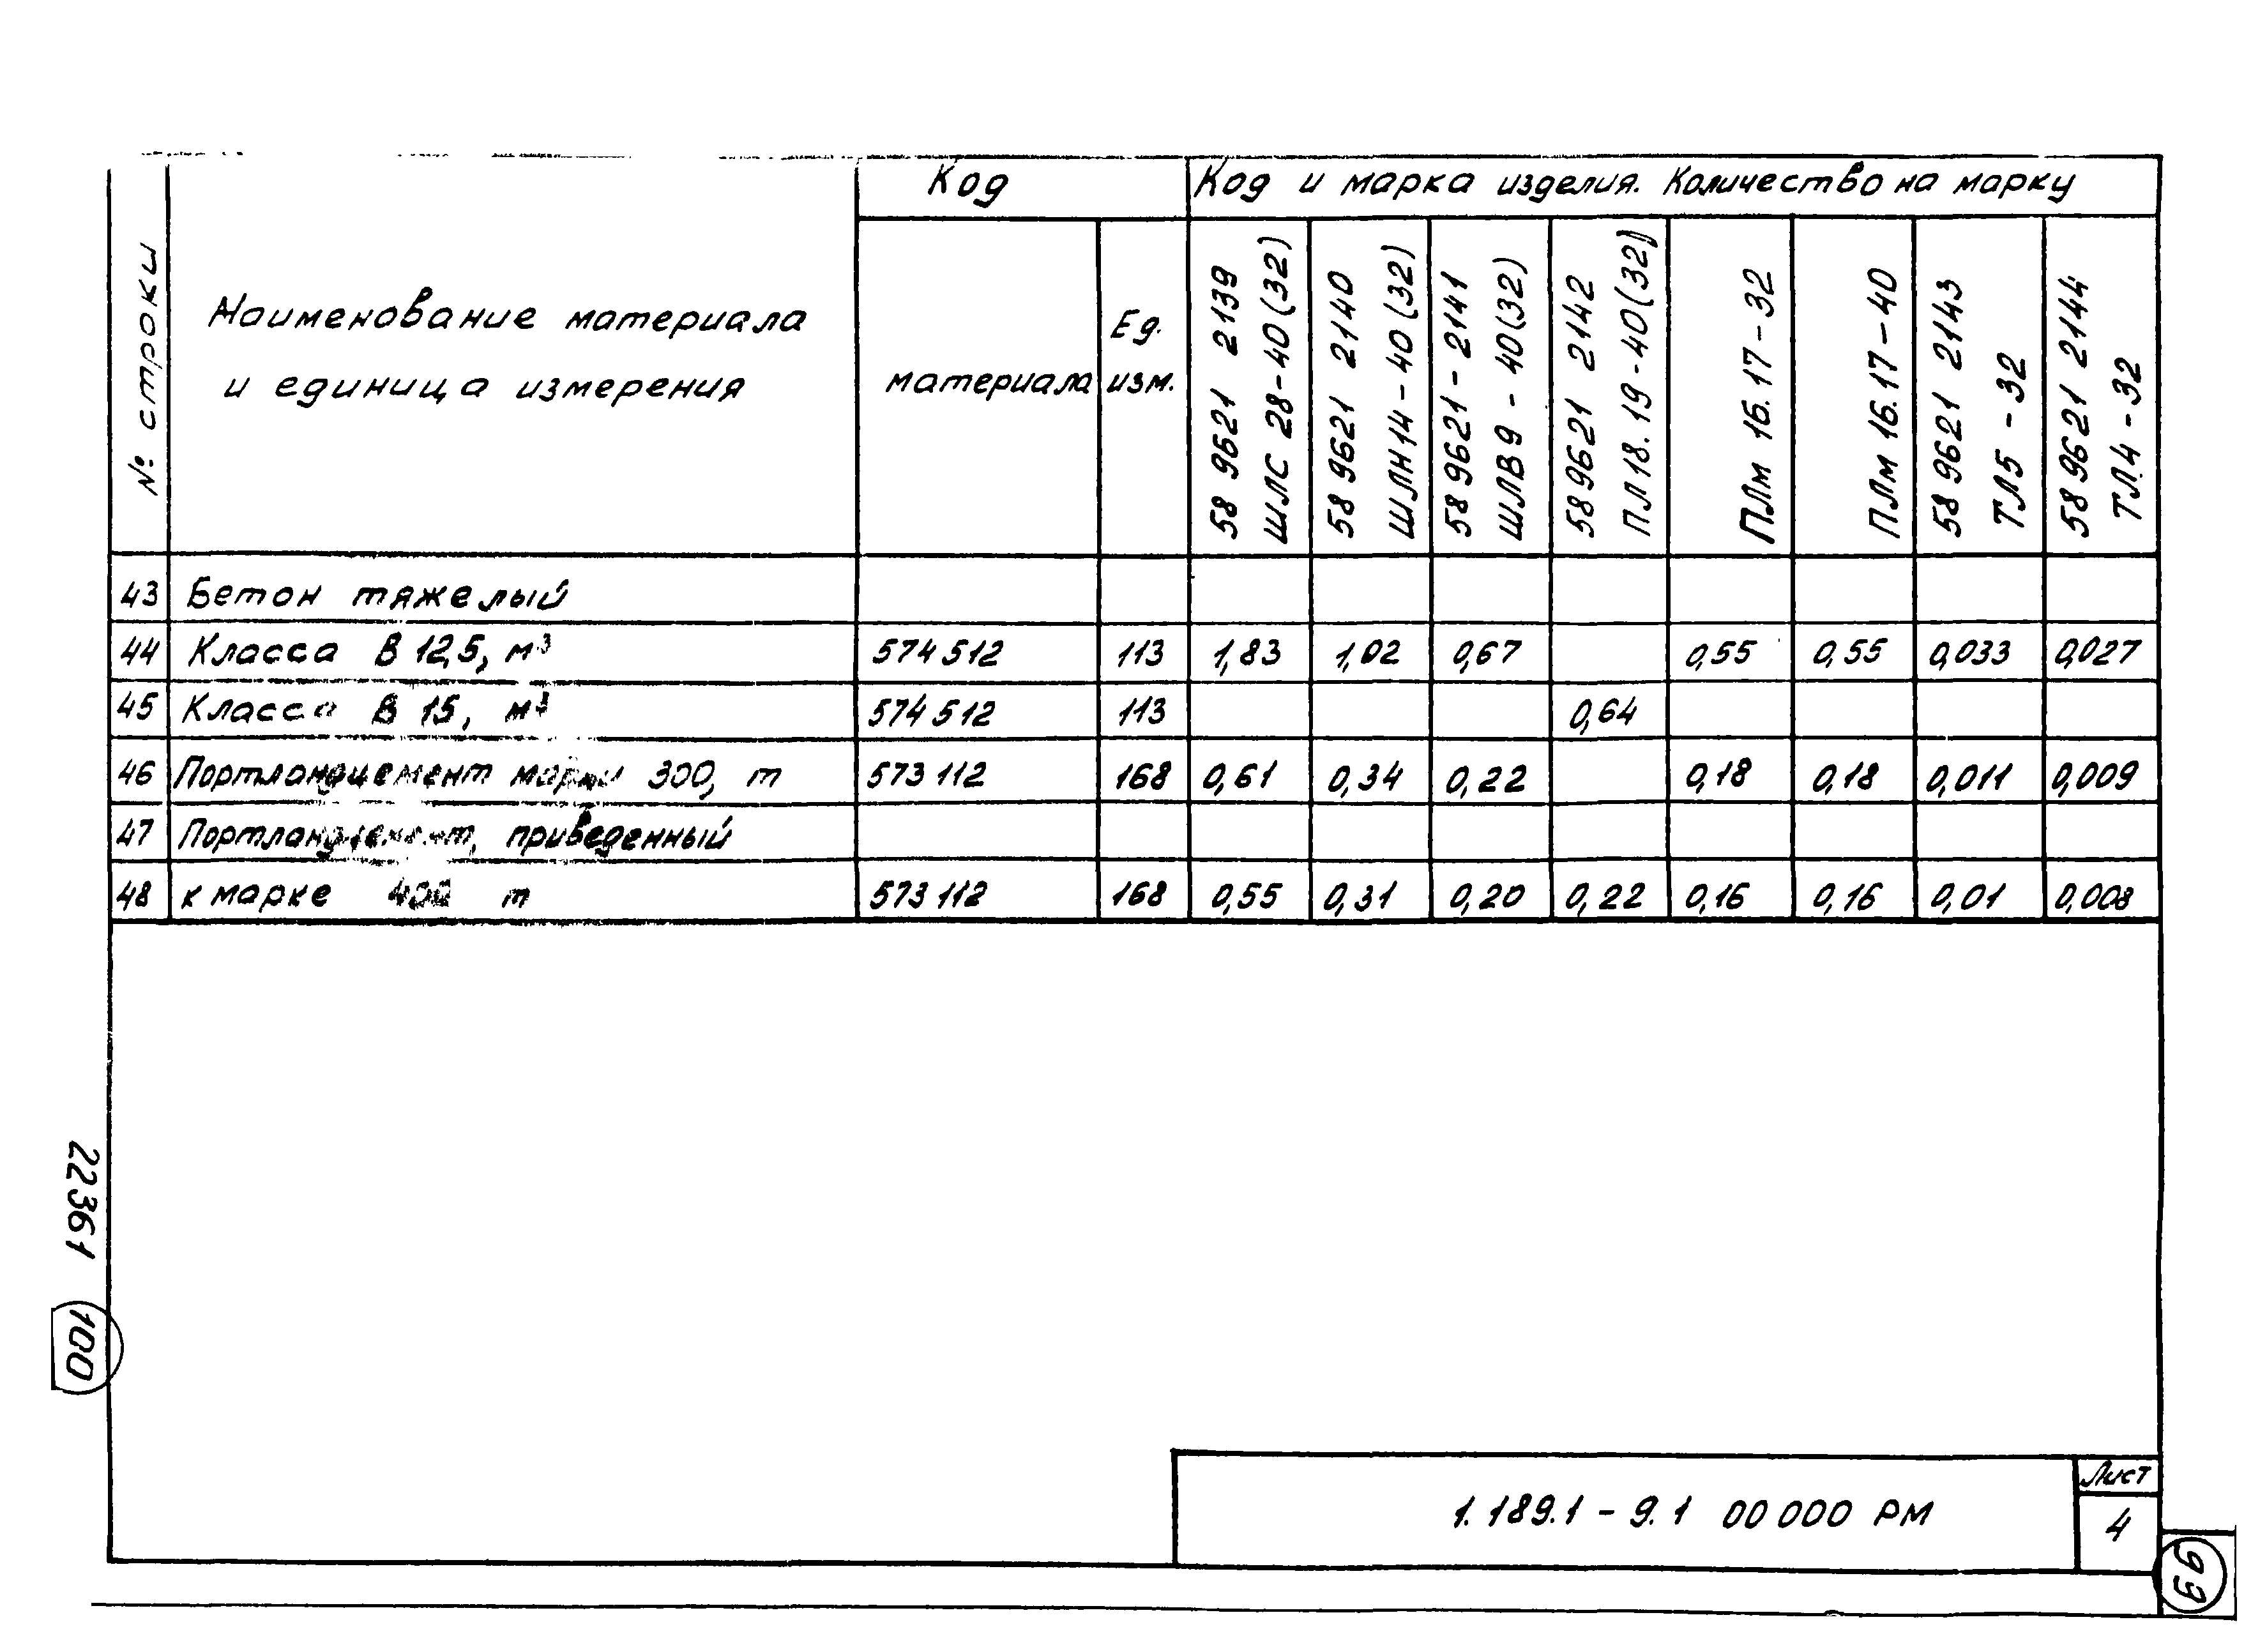 № строки
Наименование материала
и единица измерения
Код
материала
Ед.
изм.
Код и марка изделия. Количество на марку
58 9621 2139
ШЛС 28-40(32)
58 9621 2140
ШЛН14-40(32)
58 9621-2141
ШЛВ9-40(32)
58 9621 2142
ПЛ18.19-40(32)
ПЛм 16.17-32
ПЛм 16.17-40
58 9621 2143
ТЛ5-32
58 9621 2144
ТЛ.4-32
43 Бетон тяжелый
44 Класса В 12,5, м³ 574512 113 1,83 1,02 0,67 0,55 0,55 0,033 0,027
45 Класса В 15, м³ 574512 113 0,64
46 Портландцемент марки 300, т 573112 168 0,61 0,34 0,22 0,18 0,18 0,011 0,009
47 Портландцемент, приведенный
48 к марке 400 т 573112 168 0,55 0,31 0,20 0,22 0,16 0,16 0,01 0,008
22361 100
1.189.1-9.1 00 000 РМ
Лист
4
99